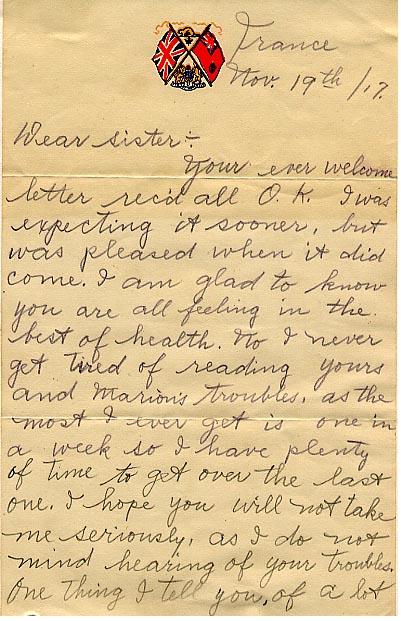 France
Nov. 19th /17.
Dear sister:-
Your ever welcome
letter rec'd all O.K. I was
expecting it sooner, but
was pleased when it did
come. I am glad to know
you are all feeling in the
best of health. No I never
get tired of reading yours
and Marion's troubles, as the
most I ever get is one in
a week so I have plenty
of time to get over the last
one. I hope you will not take
me seriously, as I do not
mind hearing of your troubles.
One thing I tell you, of a lot